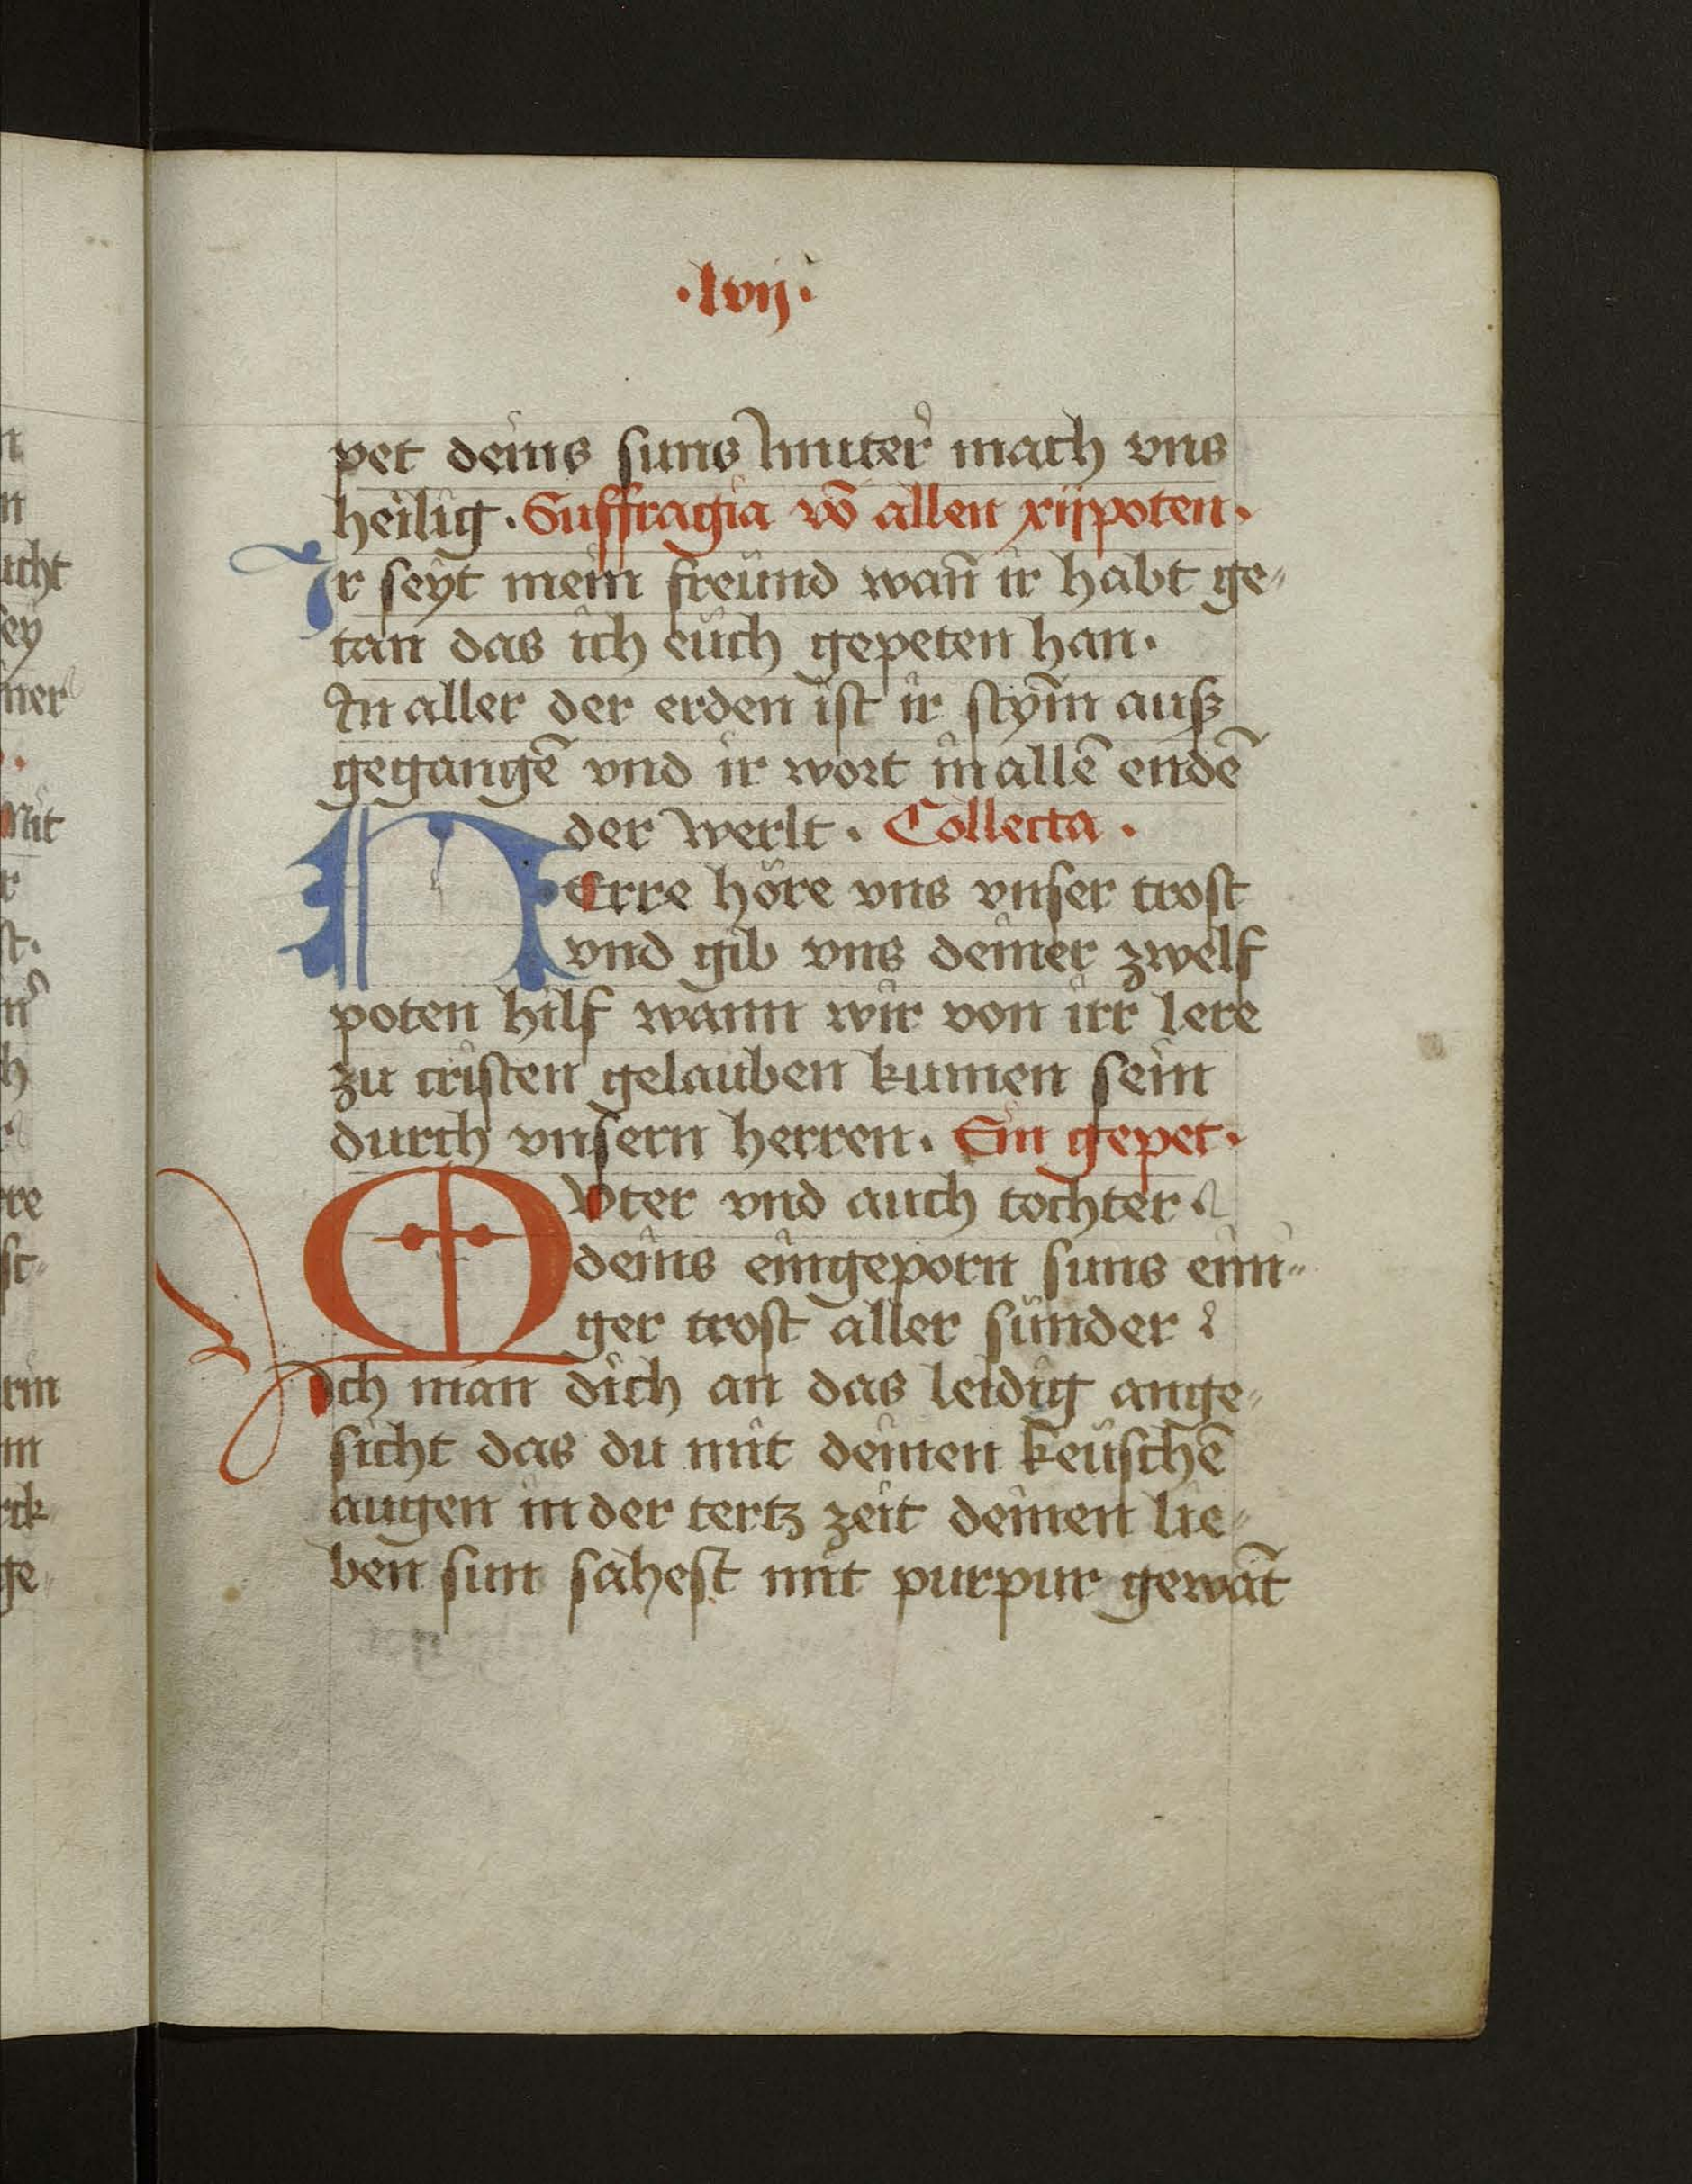 ·lvij·
pet deins suns muter mach vns
heilig. Suffragia vō allen xijpoten.
Ir seyt mein freünd wan̄ ir habt ge
tan das ich eüch gepeten han.
In aller der erden ist ir stym̄ auß
gegangē vnd ir wort in allē endē
der werlt. Collecta.
HErre höre vns vnser trost
vnd gib vns deiner zwelf
poten hilf wann wir von irr lere
zu cristen gelauben kumen sein
durch vnsern herren. Ein gepet.
MVter vnd auch tochter
deins eingeporn suns eini
ger trost aller sünder
Ich man dich an das leidig ange
sicht das du mit deinen keüschē
augen in der tertz zeit deinen lie
ben sun sahest mit purpur gewāt